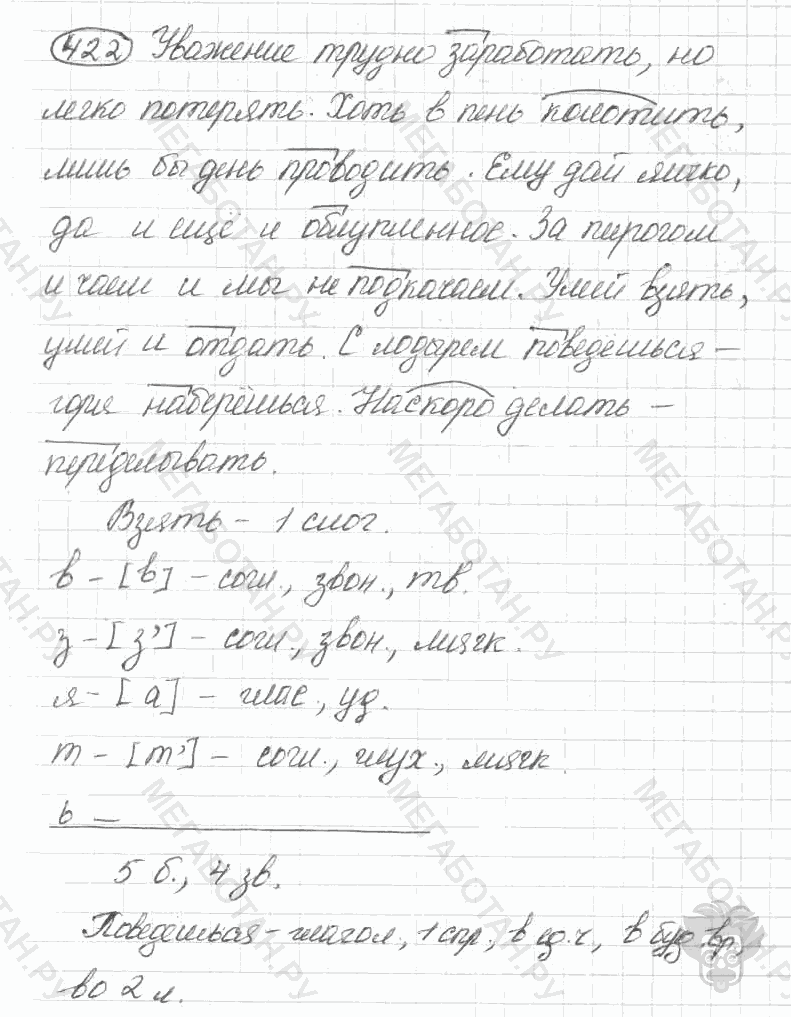 422 Уважение трудно заработать, но
легко потерять. Хоть в пень колотить,
лишь бы день проводить. Ему дай яичко,
да и ещё и облупленное. За пирогом
и чаем и мы не подкачаем. Умей взять,
умей и отдать. С лодырем поведёшься –
горя наберёшься. Наскоро делать –
переделывать.
Взять – 1 слог.
в – [в] – согл., звон., тв.
з – [з'] – согл., звон., мягк.
я – [а] – глас, уд.
т – [т'] – согл., глух., мягк.
ь –
5 б., 4 зв.
Поведёшься – глагол, 1 спр., в ед. ч., в буд. вр.
во 2 л.
МЕГАБОТАН.РУ